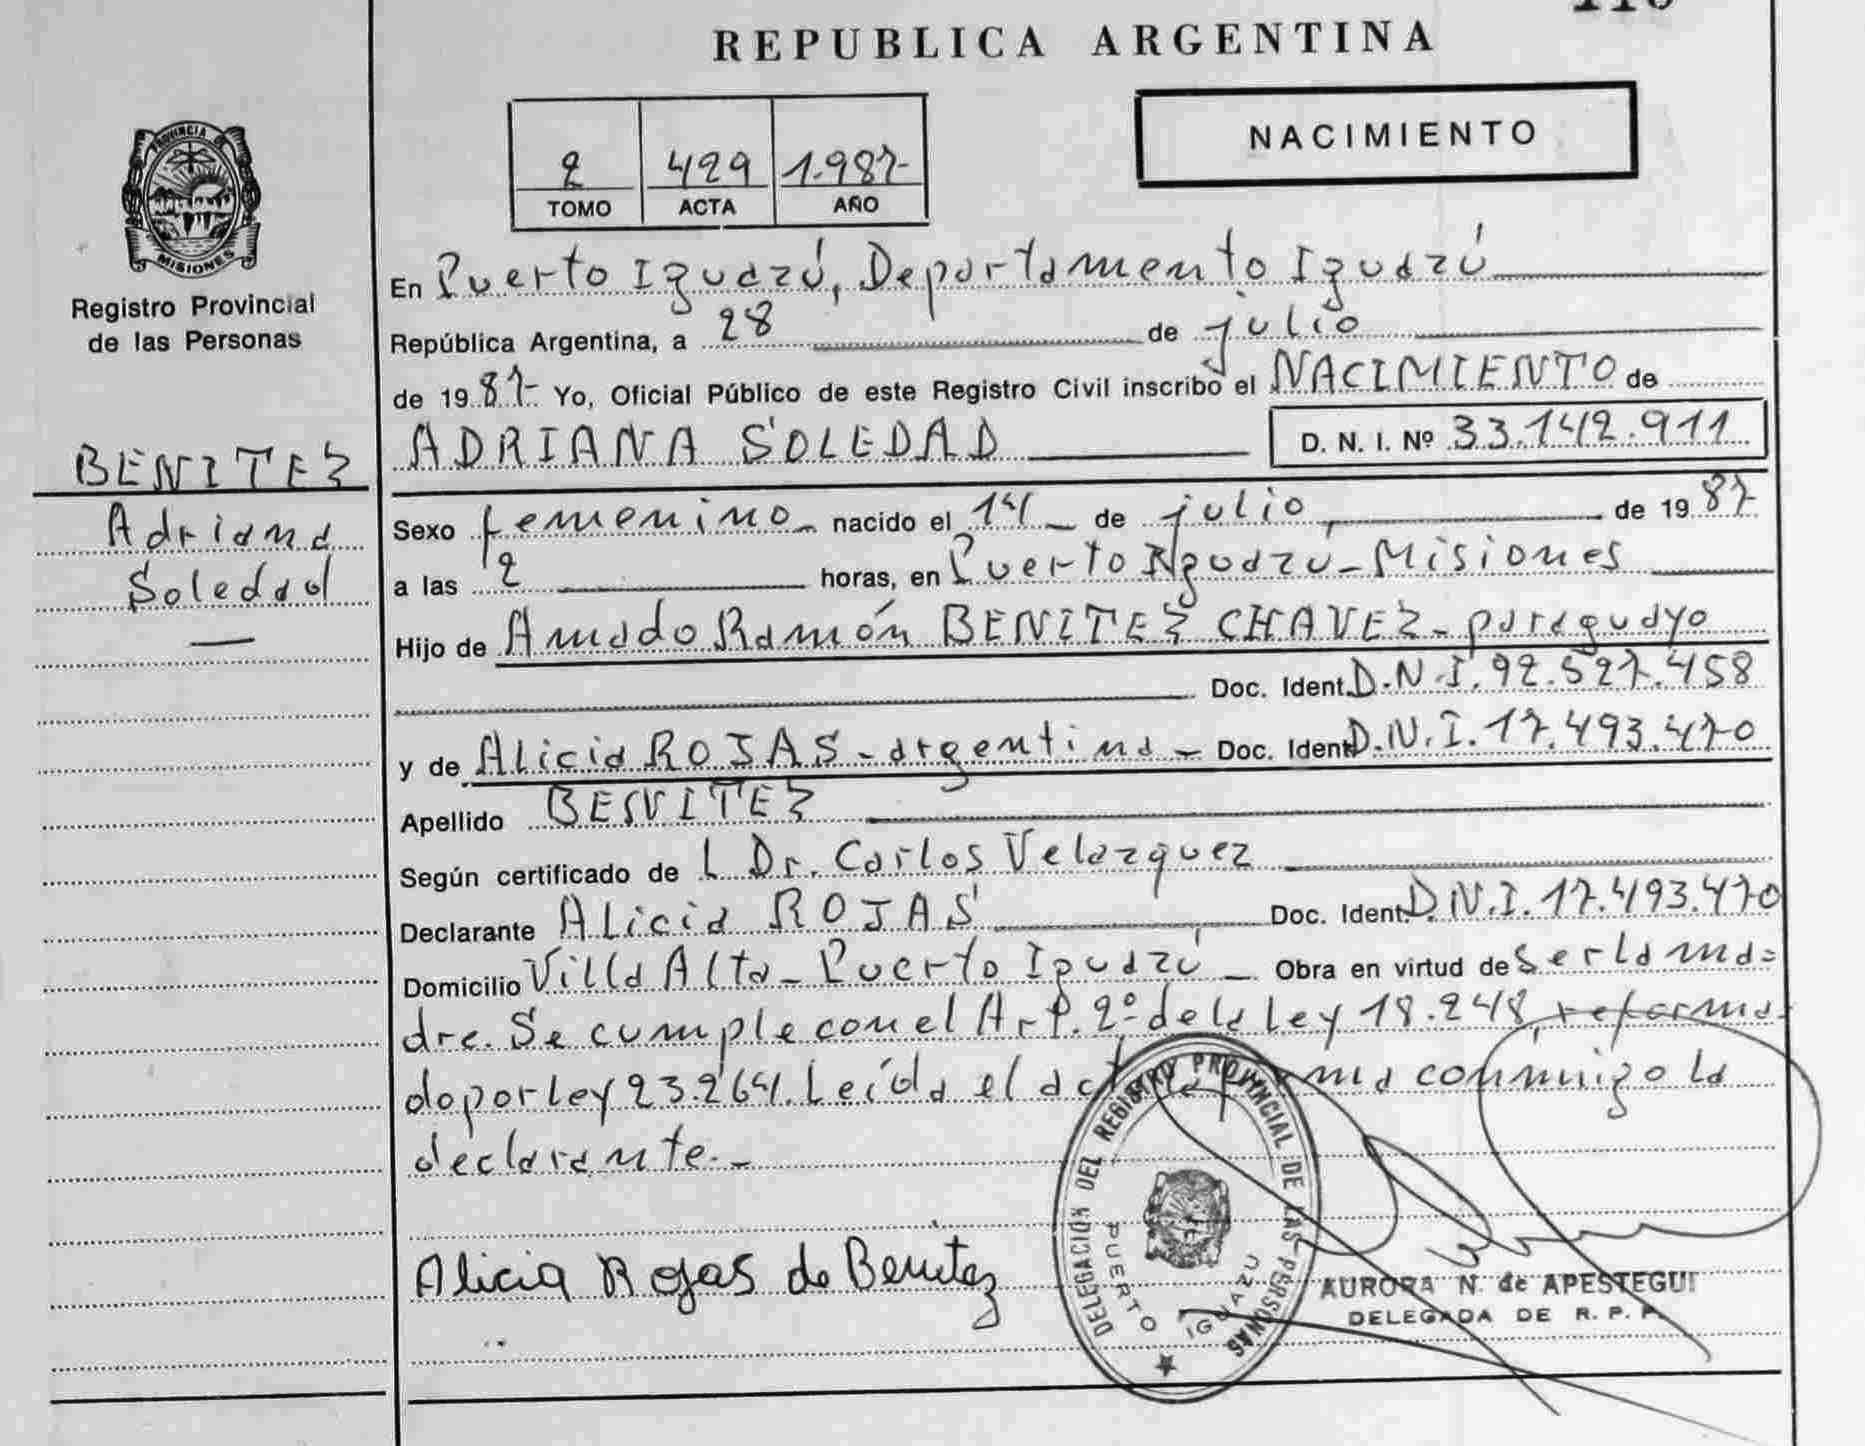 REPUBLICA ARGENTINA
NACIMIENTO
2 429 1.987-
TOMO ACTA AÑO
PROVINCIA
MISIONES
Registro Provincial
de las Personas
BENITEZ
Adriana
Soledad
—
En Puerto Iguazú, Departamento Iguazú
República Argentina, a 28 de julio
de 1987- Yo, Oficial Público de este Registro Civil inscribo el NACIMIENTO de
ADRIANA SOLEDAD D. N. I. Nº 33.142.911
Sexo femenino - nacido el 14 - de julio, de 1987-
a las 2 horas, en Puerto Iguazú - Misiones
Hijo de Amado Ramón BENITEZ CHAVEZ - paraguayo
Doc. Ident. D.N.I. 92.527.458
y de Alicia ROJAS - argentina - Doc. Ident. D.N.I. 17.493.470
Apellido BENITEZ
Según certificado de L Dr. Carlos Velazquez
Declarante Alicia ROJAS Doc. Ident. D.N.I. 17.493.470
Domicilio Villa Alta - Puerto Iguazú - Obra en virtud de ser la ma=
dre. Se cumple con el Art. 2º de la Ley 18.248, reforma-
do por ley 23.264. Leída el acta la firma conmigo la
declarante.-
Alicia Rojas de Benitez
DELEGACION DEL REGISTRO PROVINCIAL DE LAS PERSONAS
PUERTO IGUAZU
AURORA N. de APESTEGUI
DELEGADA DE R. P. P.